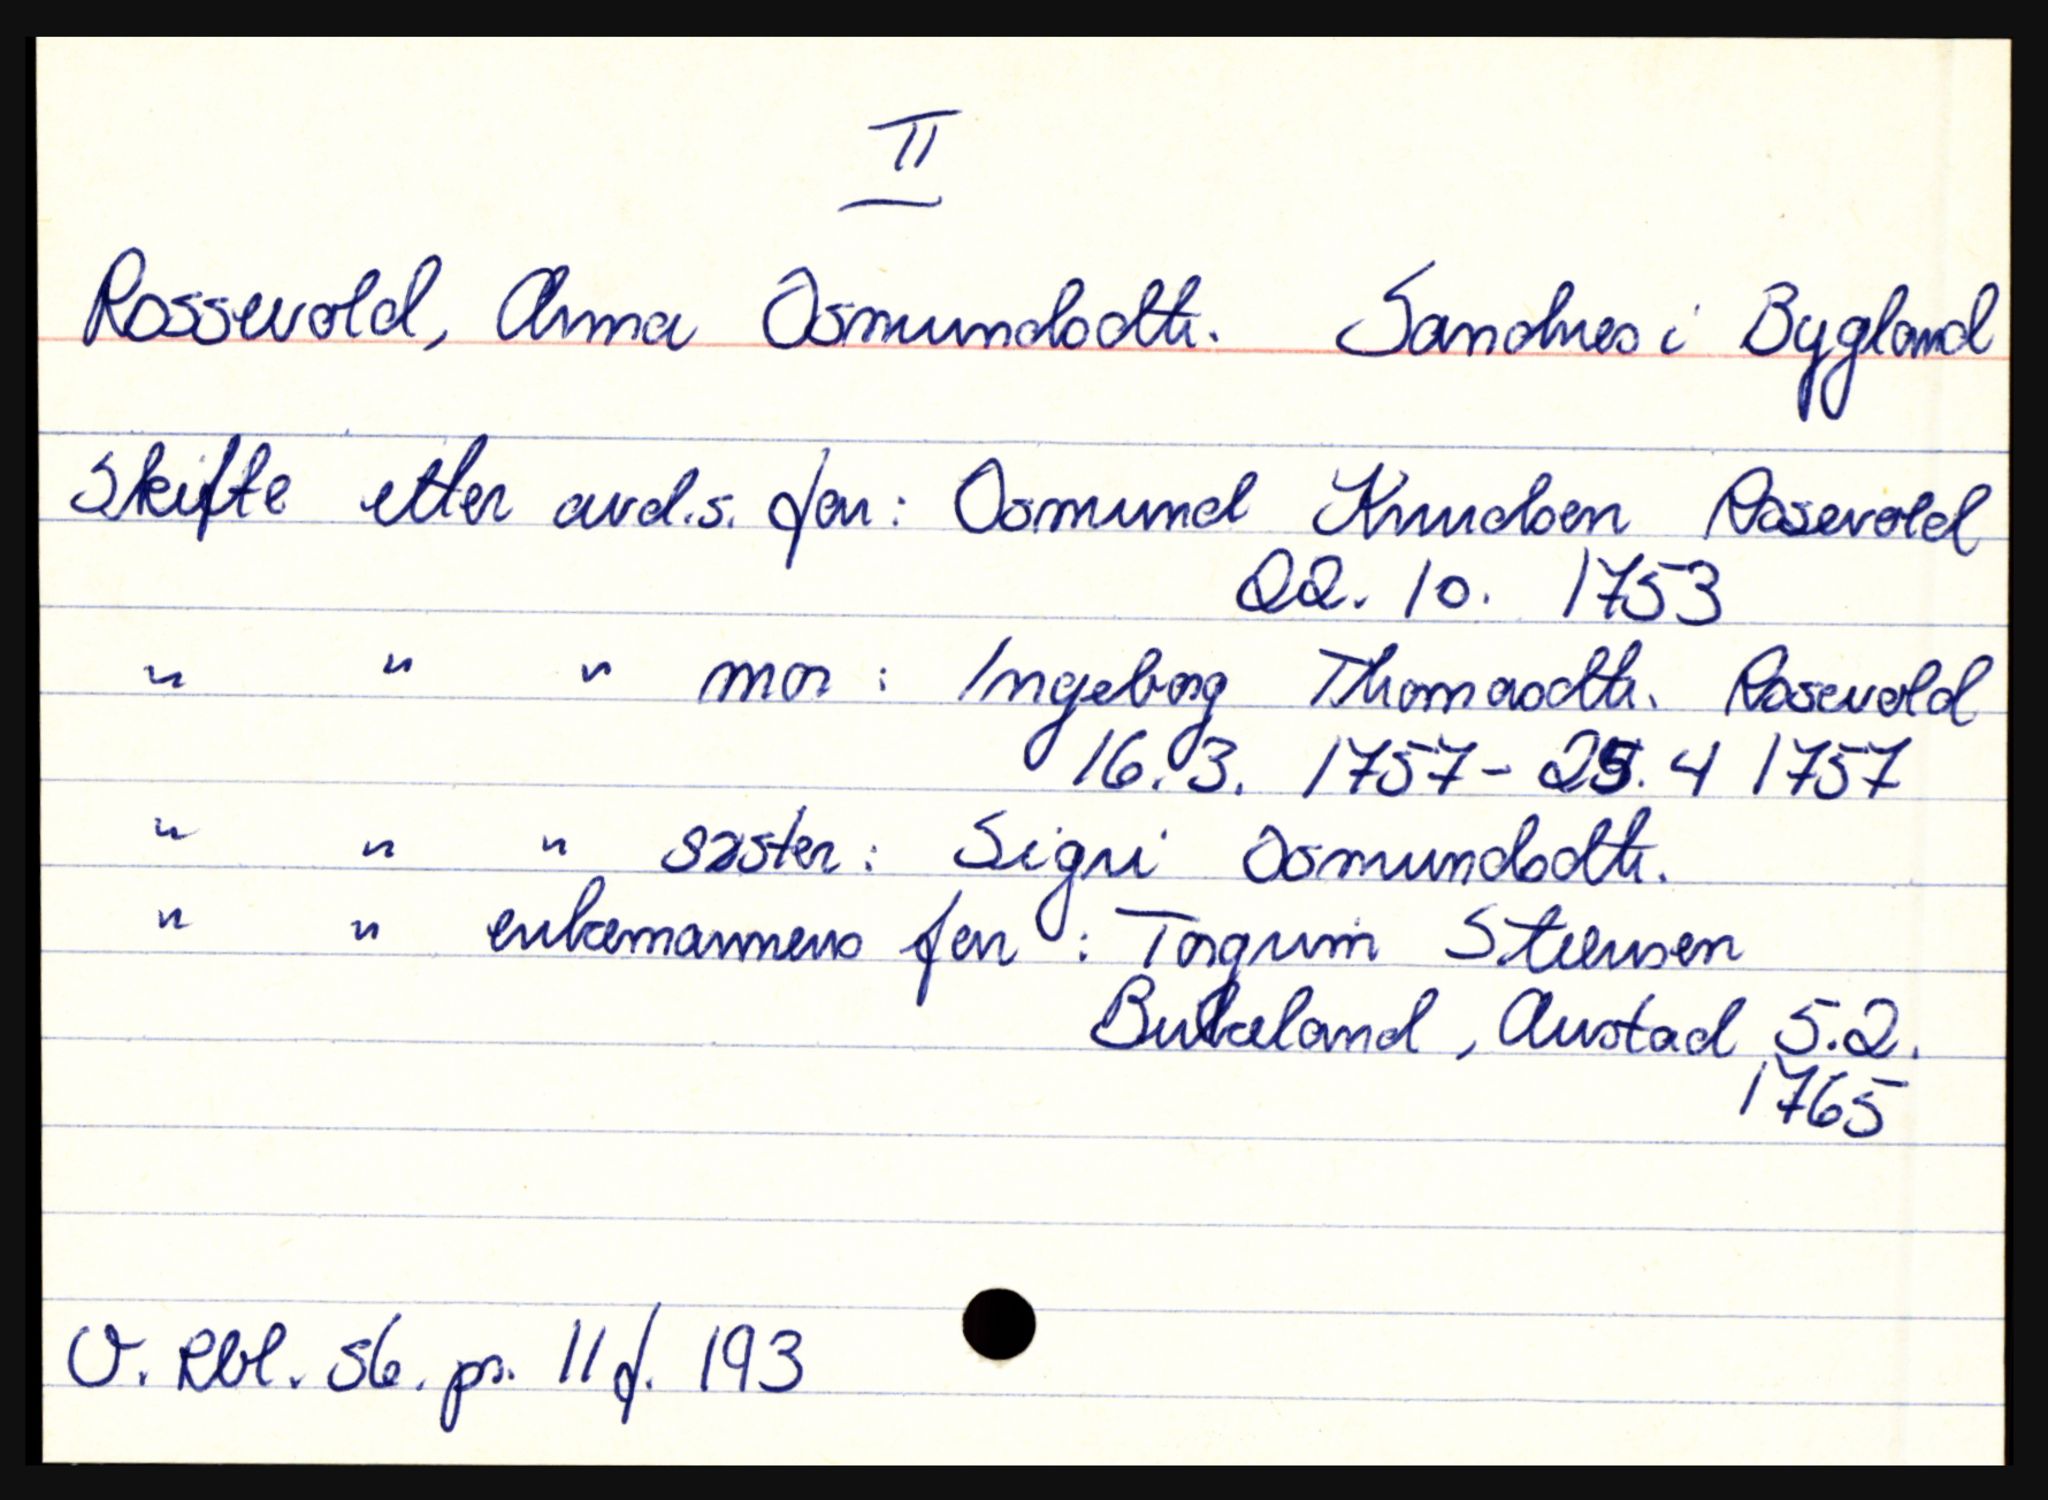 II
Rossevold, Anna Osmundsdtr. Sandnes i Bygland
Skifte etter avd.s. far: Osmund Knudsen Rosevold
22. 10. 1753
" " " mor: Ingeborg Thomasdtr. Rosevold
16.3. 1757 - 25.4 1757
" " " søster: Sigri Osmundsdtr.
" " enkemannens far: Torgrim Steensen
Birkeland, Austad 5.2.
1765
V. Rbl. s6. pr. 11 f. 193